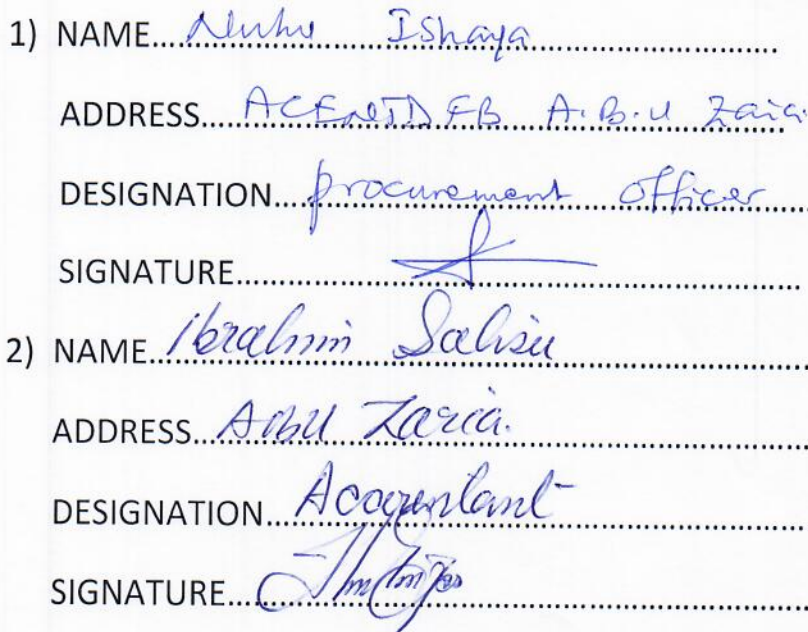 1) NAME Nuhu Ishaya
ADDRESS ACENTDFB A.B.U Zaria
DESIGNATION procurement officer
SIGNATURE
2) NAME Ibrahim Salisu
ADDRESS ABU Zaria.
DESIGNATION Accountant
SIGNATURE